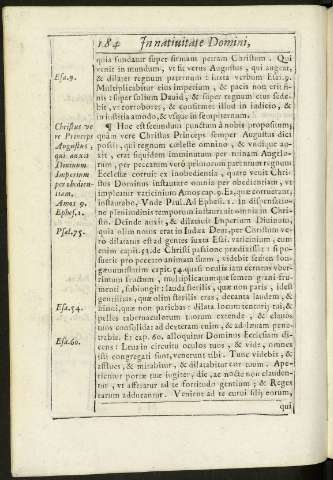 184 In natiuitate Domini,
quia fundatur super firmam petram Christum. Qui
venit in mundum, vt sit verus Augustus, qui augeat,
Esa.9. & dilatet regnum paternum: iuxta verbum Esai.9.
Multiplicabitur eius imperium, & pacis non erit fi-
nis: super solium Dauid, & super regnum eius sede-
bit, vt corroboret, & confirmet illud in iudicio, &
in iustitia amodo, & vsque in sempiternum.
Christus ve ¶ Hoc est secundum punctum à nobis propositum,
re Princeps quàm verè Christus Princeps semper Augustus dici
Augustus, possit, qui regnum cæleste omnino, & vndique au-
qui auxit xit, erat siquidem imminutum per ruinam Angelo-
Diuinum rum, per peccatum verò primorum parentum regnum
Imperium Ecclesiæ corruit ex inobedientia, quare venit Chri-
per obedien- stus Dominus instaurare omnia per obedientiam, vt
tiam. impleatur vaticinium Amos cap.9. Ea, quæ corruerant,
Amos 9. instaurabo. Vnde Paul. Ad Ephes.1. In dispensatio-
Ephes.1. ne plenitudinis temporum instaurauit omnia in Chri-
sto. Deinde auxit, & dilatauit Imperium Diuinum,
Psal.75. quia olim notus erat in Iudæa Deus, per Christum ve-
ro dilatatus est ad gentes iuxta Esai. vaticinium, cum
enim capit.53. de Christi passione prædixisset: si po-
suerit pro peccato animam suam, videbit semen lon-
gæuum statim cap.54. quasi oculis iam cernens vber-
rimum fructum, multiplicatumque semen grani fru-
menti, subiungit: lauda sterilis, quæ non paris, idest
gentilitas, quæ olim sterilis eras, decanta laudem, &
Esa.54. hinni, quæ non pariebas: dilata locum tentorij tui, &
pelles tabernaculorum tuorum extende, & clauos
tuos consolida: ad dexteram enim, & ad læuam pene-
Esa.60. trabis. Et cap. 60. alloquitur Dominus Ecclesiam di-
cens: Leua in circuitu oculos tuos, & vide, omnes
isti congregati sunt, venerunt tibi. Tunc videbis, &
afflues, & mirabitur, & dilatabitur cor tuum. Ape-
rientur portæ tuæ iugiter, die, ac nocte non clauden-
tur, vt afferatur ad te fortitudo gentium, & Reges
earum adducantur. Venient ad te curui filij eorum,
qui